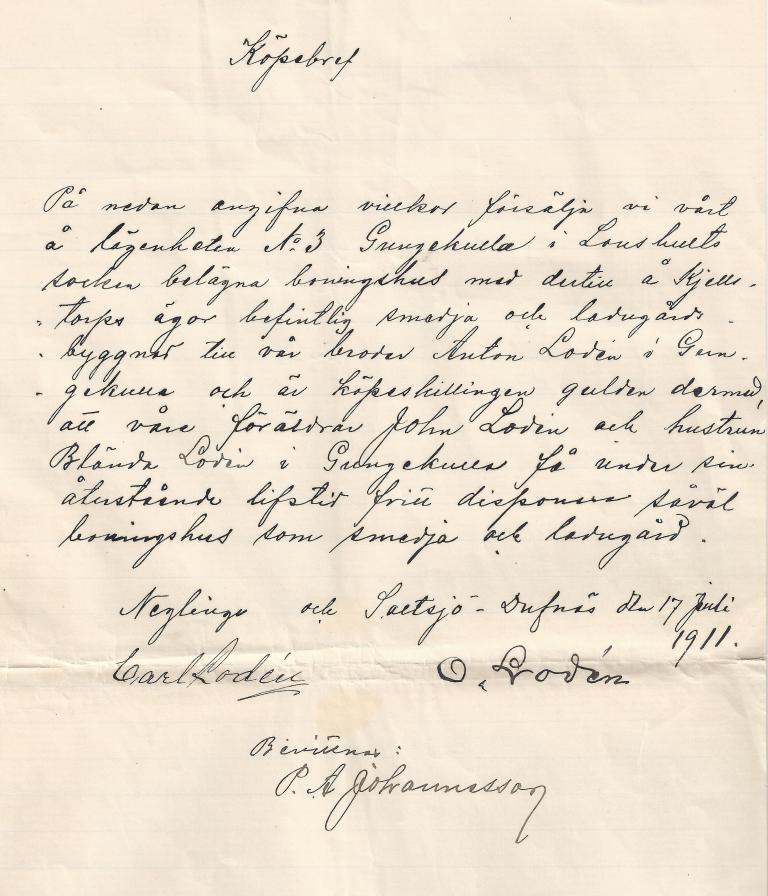 Köpebref
På nedan angifna villkor försälja vi vårt
å lägenheten No 3 Gungekulla i Lonshults
socken belägna boningshus med dertill å Kjells-
-torps ägor befintlig smedja och ladugårds-
-byggnad till vår broder Anton Lodén i Gun-
-gekulla och är köpeskillingen gulden dermed,
att våra föräldrar John Lodén och hustrun
Blända Lodén i Gungekulla få under sin
återstående lifstid fritt disponera såväl
boningshus som smedja och ladugård.
Neglinge och Saltsjö-Dufnäs den 17 Juli
1911.
Carl Lodén O. Lodén
Bevittnar:
P. A Johannesson